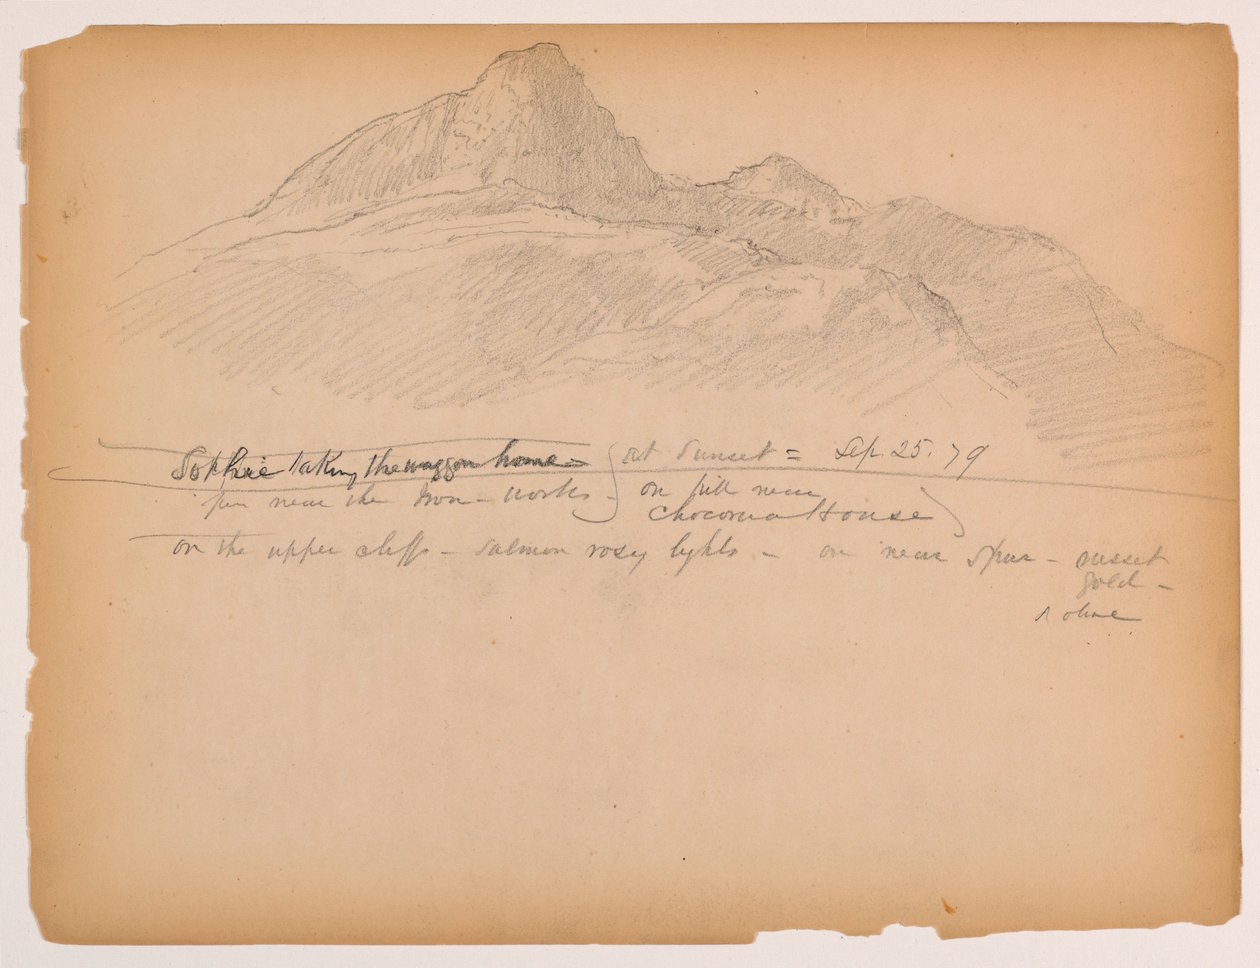 Sophie taking the waggon home = at Sunset = Sep. 25. 79
near the Iron-works - on hill near
Chocorua House
on the upper cliffs - salmon rosy lights - on near spur - russet
gold -
& olive